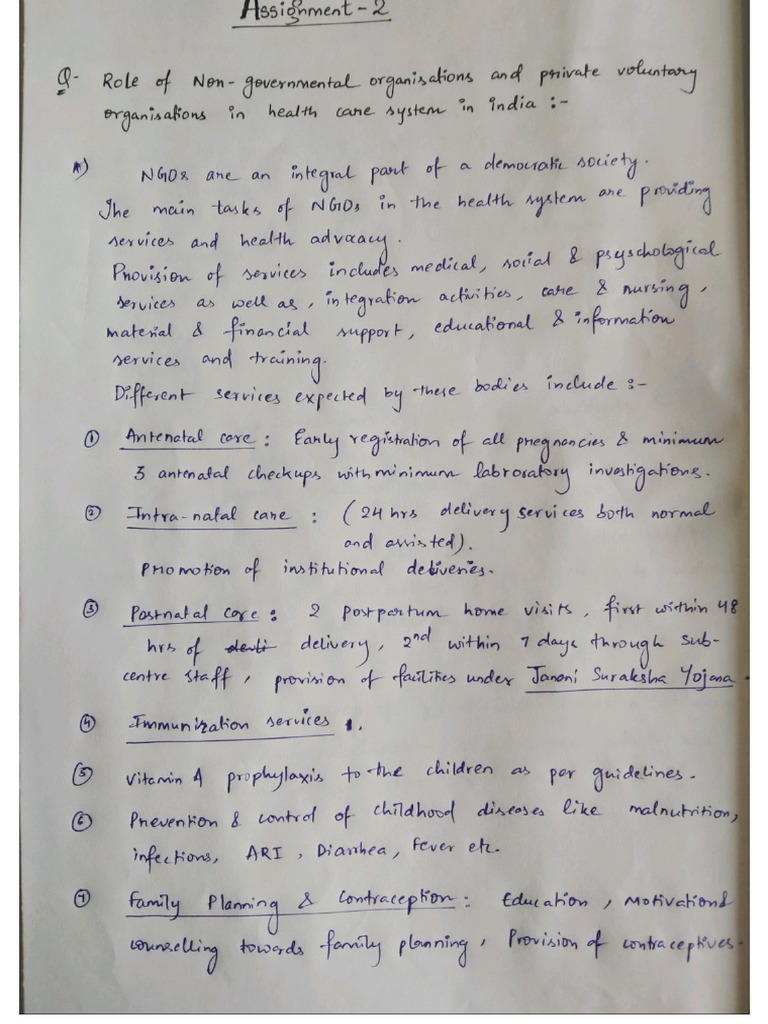 Assignment - 2
Q- Role of Non-governmental organisations and private voluntary
organisations in health care system in india :-
A) NGOs are an integral part of a democratic society.
The main tasks of NGOs in the health system are providing
services and health advocacy.
Provision of services includes medical, social & psyschological
services as well as, integration activities, care & nursing,
material & financial support, educational & information
services and training.
Different services expected by these bodies include :-
① Antenatal care : Early registration of all pregnancies & minimum
3 antenatal checkups with minimum labroratory investigations.
② Intra-natal care : (24 hrs delivery services both normal
and assisted).
Promotion of institutional deliveries.
③ Postnatal care : 2 postpartum home visits, first within 48
hrs of delivery, 2nd within 7 days through sub-
centre staff, provision of facilities under Janani Suraksha Yojana.
④ Immunization services.
⑤ Vitamin A prophylaxis to the children as per guidelines.
⑥ Prevention & control of childhood diseases like malnutrition,
infections, ARI, Diarrhea, Fever etc.
⑦ Family Planning & Contraception : Education, Motivation &
counselling towards family planning, Provision of contraceptives.